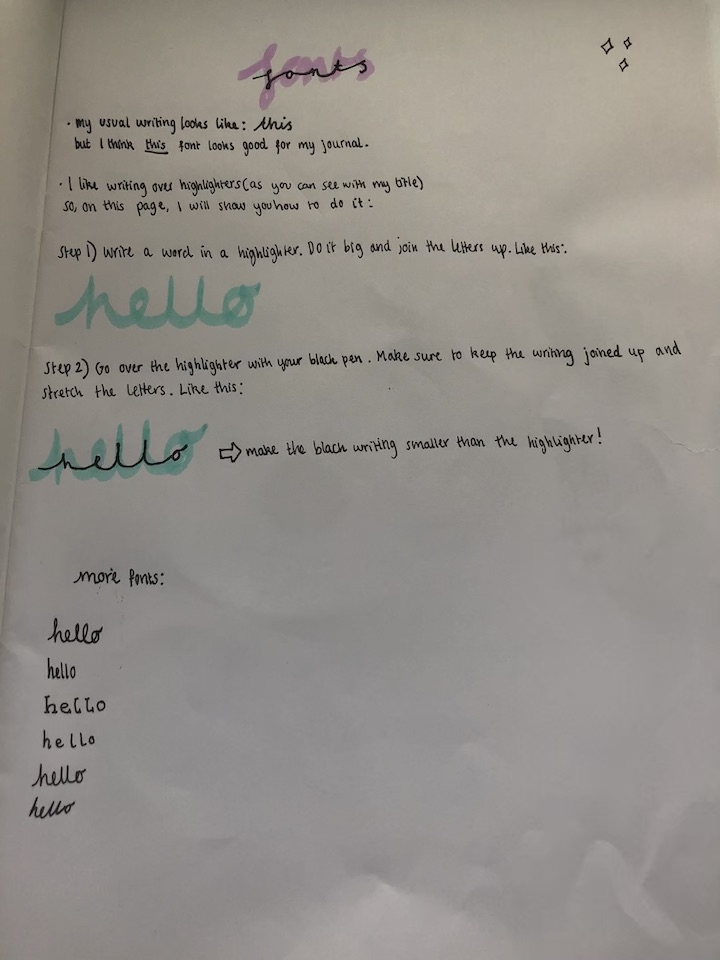 fonts
· my usual writing looks like: this
but I think this font looks good for my journal.
· I like writing over highlighters (as you can see with my title)
so, on this page, I will show you how to do it:
Step 1) Write a word in a highlighter. Do it big and join the letters up. Like this:
hello
Step 2) Go over the highlighter with your black pen. Make sure to keep the writing joined up and
stretch the letters. Like this:
hello ⇨ make the black writing smaller than the highlighter!
more fonts:
hello
hello
hello
hello
hello
hello